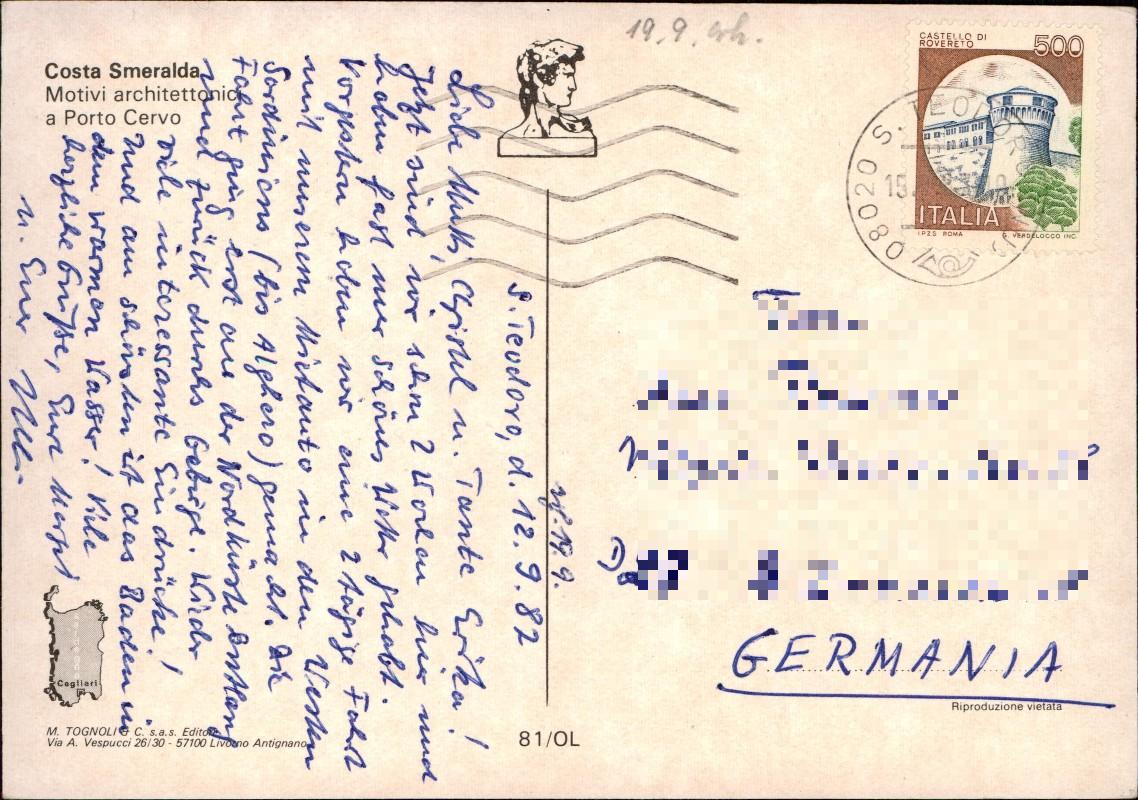 Costa Smeralda
Motivi architettonici
a Porto Cervo
19.9. erh.
CASTELLO DI
ROVERETO
500
ITALIA
I.P.Z.S. ROMA G. VERDELOCCO INC.
08020 S. TEODORO
15
S. Teodoro, d. 12.9.82
Liebe Mutti, Christel u. Tante Erika!
Jetzt sind wir schon 2 Wochen hier und
haben fast nur schönes Wetter gehabt.
Vorgestern haben wir eine 2 tägige Fahrt
mit unserem Mietauto in den Westen
Sardiniens (bis Alghero) gemacht. Die
Fahrt ging erst an der Nordküste entlang
und zurück durchs Gebirge. Wieder
viele interessante Eindrücke!
Und am schönsten ist das Baden in
dem warmen Wasser! Viele
herzliche Grüße, Eure Margit
u. Euer Ulli.
19.9.
GERMANIA
Riproduzione vietata
Cagliari
M. TOGNOLI & C. s.a.s. Editore
Via A. Vespucci 26/30 - 57100 Livorno Antignano
81/OL